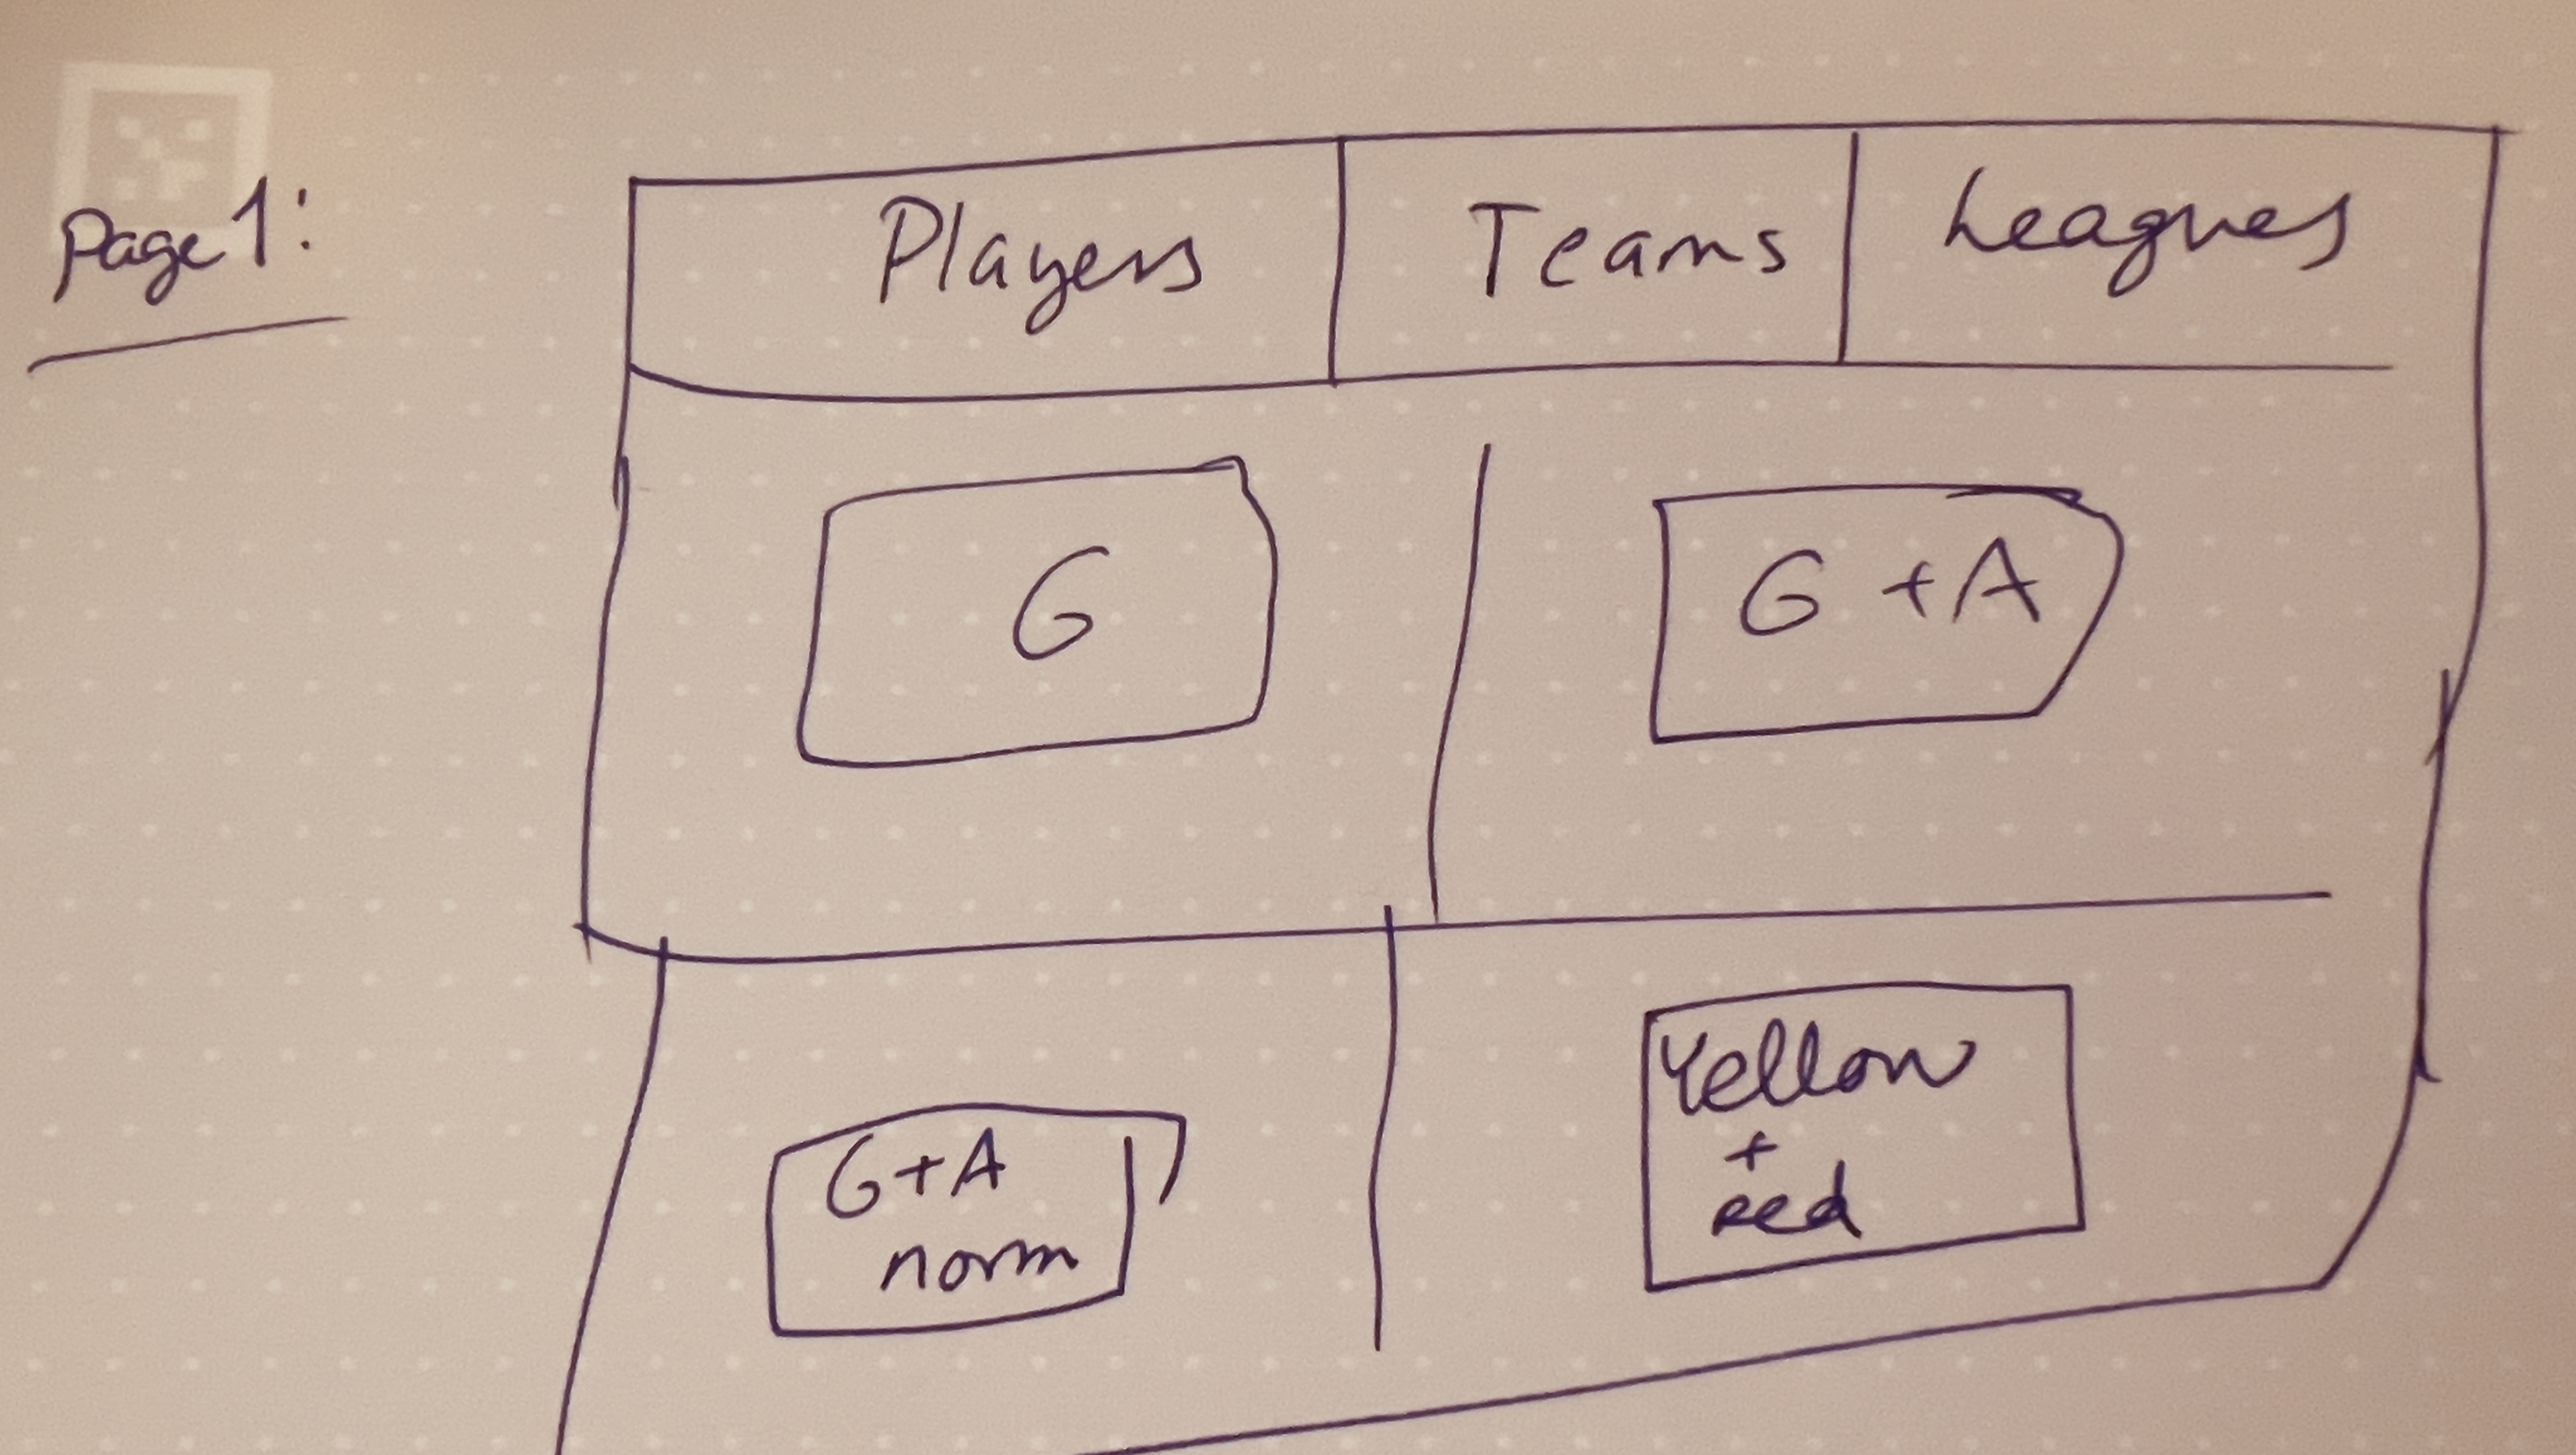 Page 1:
Players Teams Leagues
G G + A
G+A
norm
Yellow
+
red